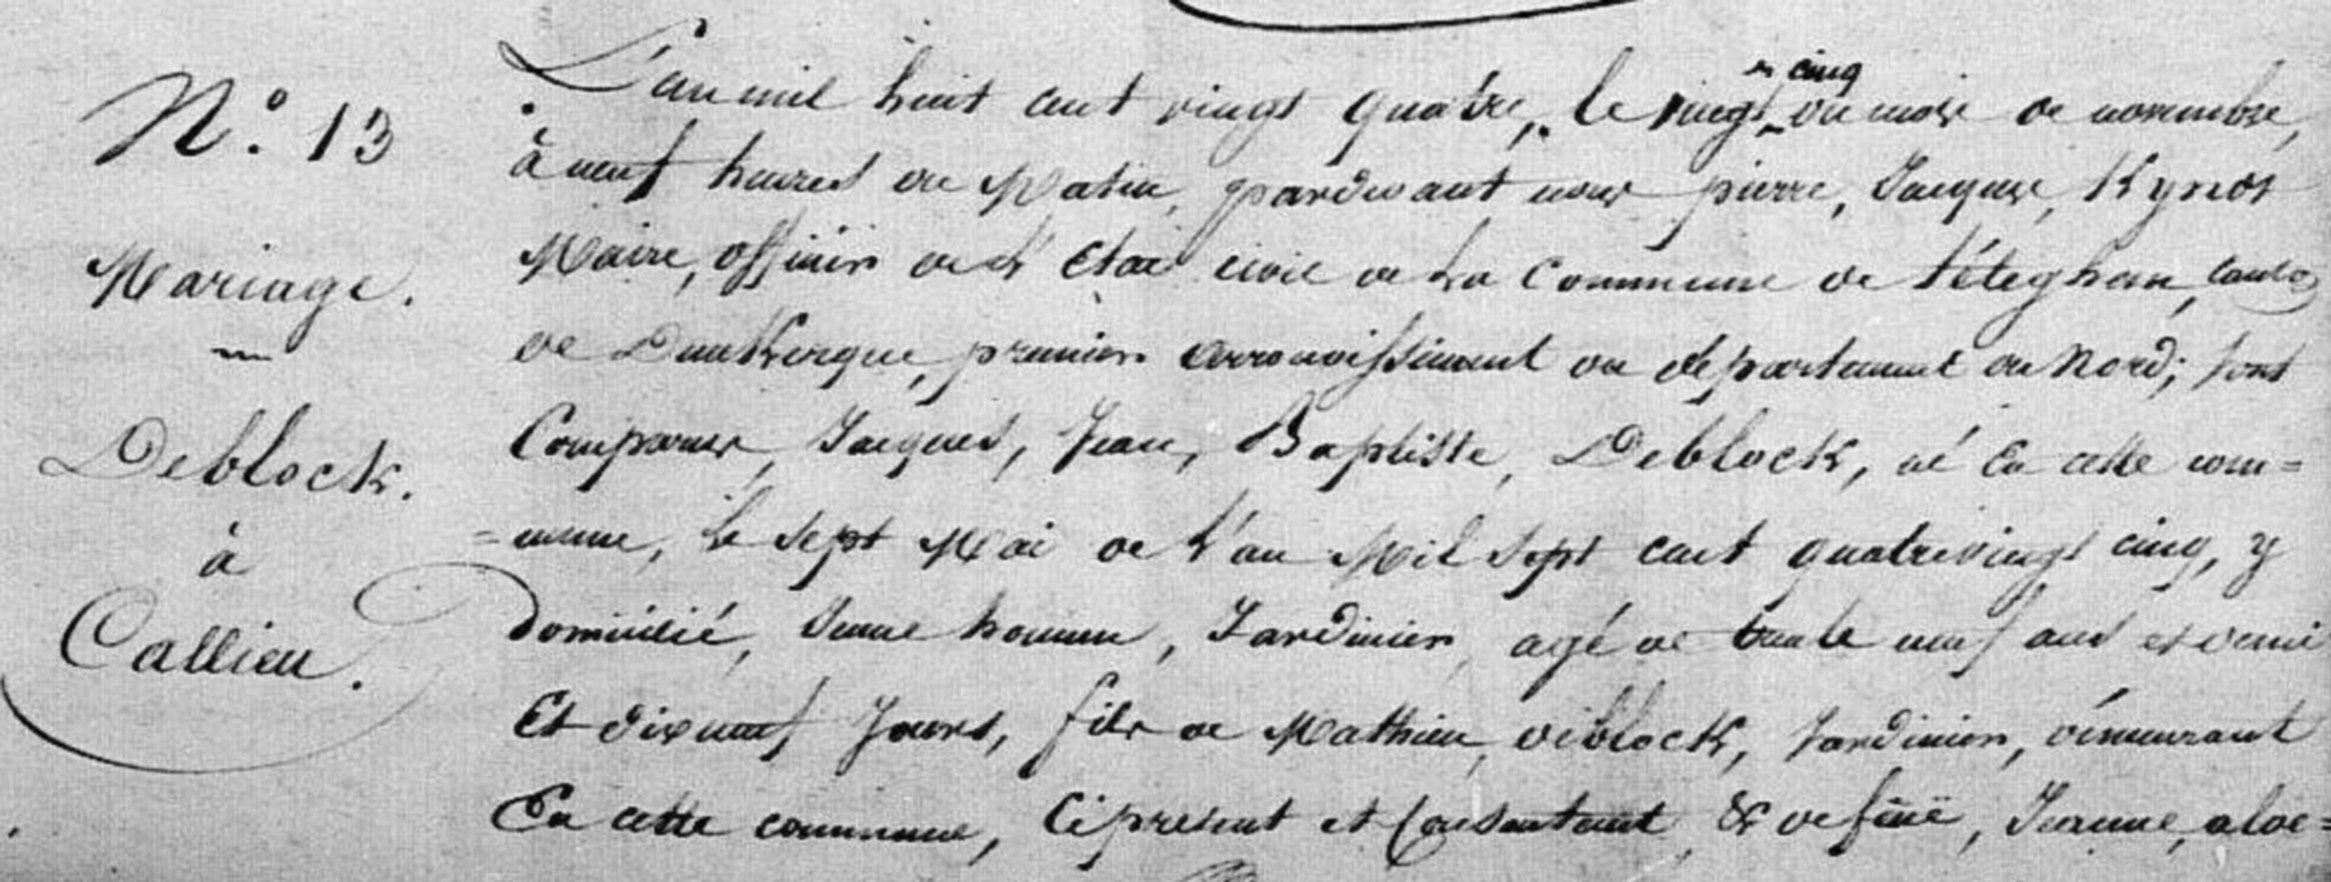 N.° 13
Mariage.
Deblock.
à
Callieu.
et cinq
L'an mil huit cent vingt quatre, le vingt du mois de novembre,
à neuf heures du Matin, pardevant nous pierre, Jacques,
Maire, officier de L'Etat civil de La Commune de téteghem, canton
de Dunkerque, premier arrondissement du département du Nord; sont
Comparus, Jacques, Jean, Baptiste, Deblock, né En cette com=
=mune, le sept Mai de L'an Mil sept cent quatrevingt cinq, y
Domicilié, Jeune homme, Jardinier, agé de trente neuf ans et demi
Et dixneuf Jours, fils de Mathieu, deblock, Jardinier, démeurant
En cette commune, Cipresent et Consentant, & de feüe,